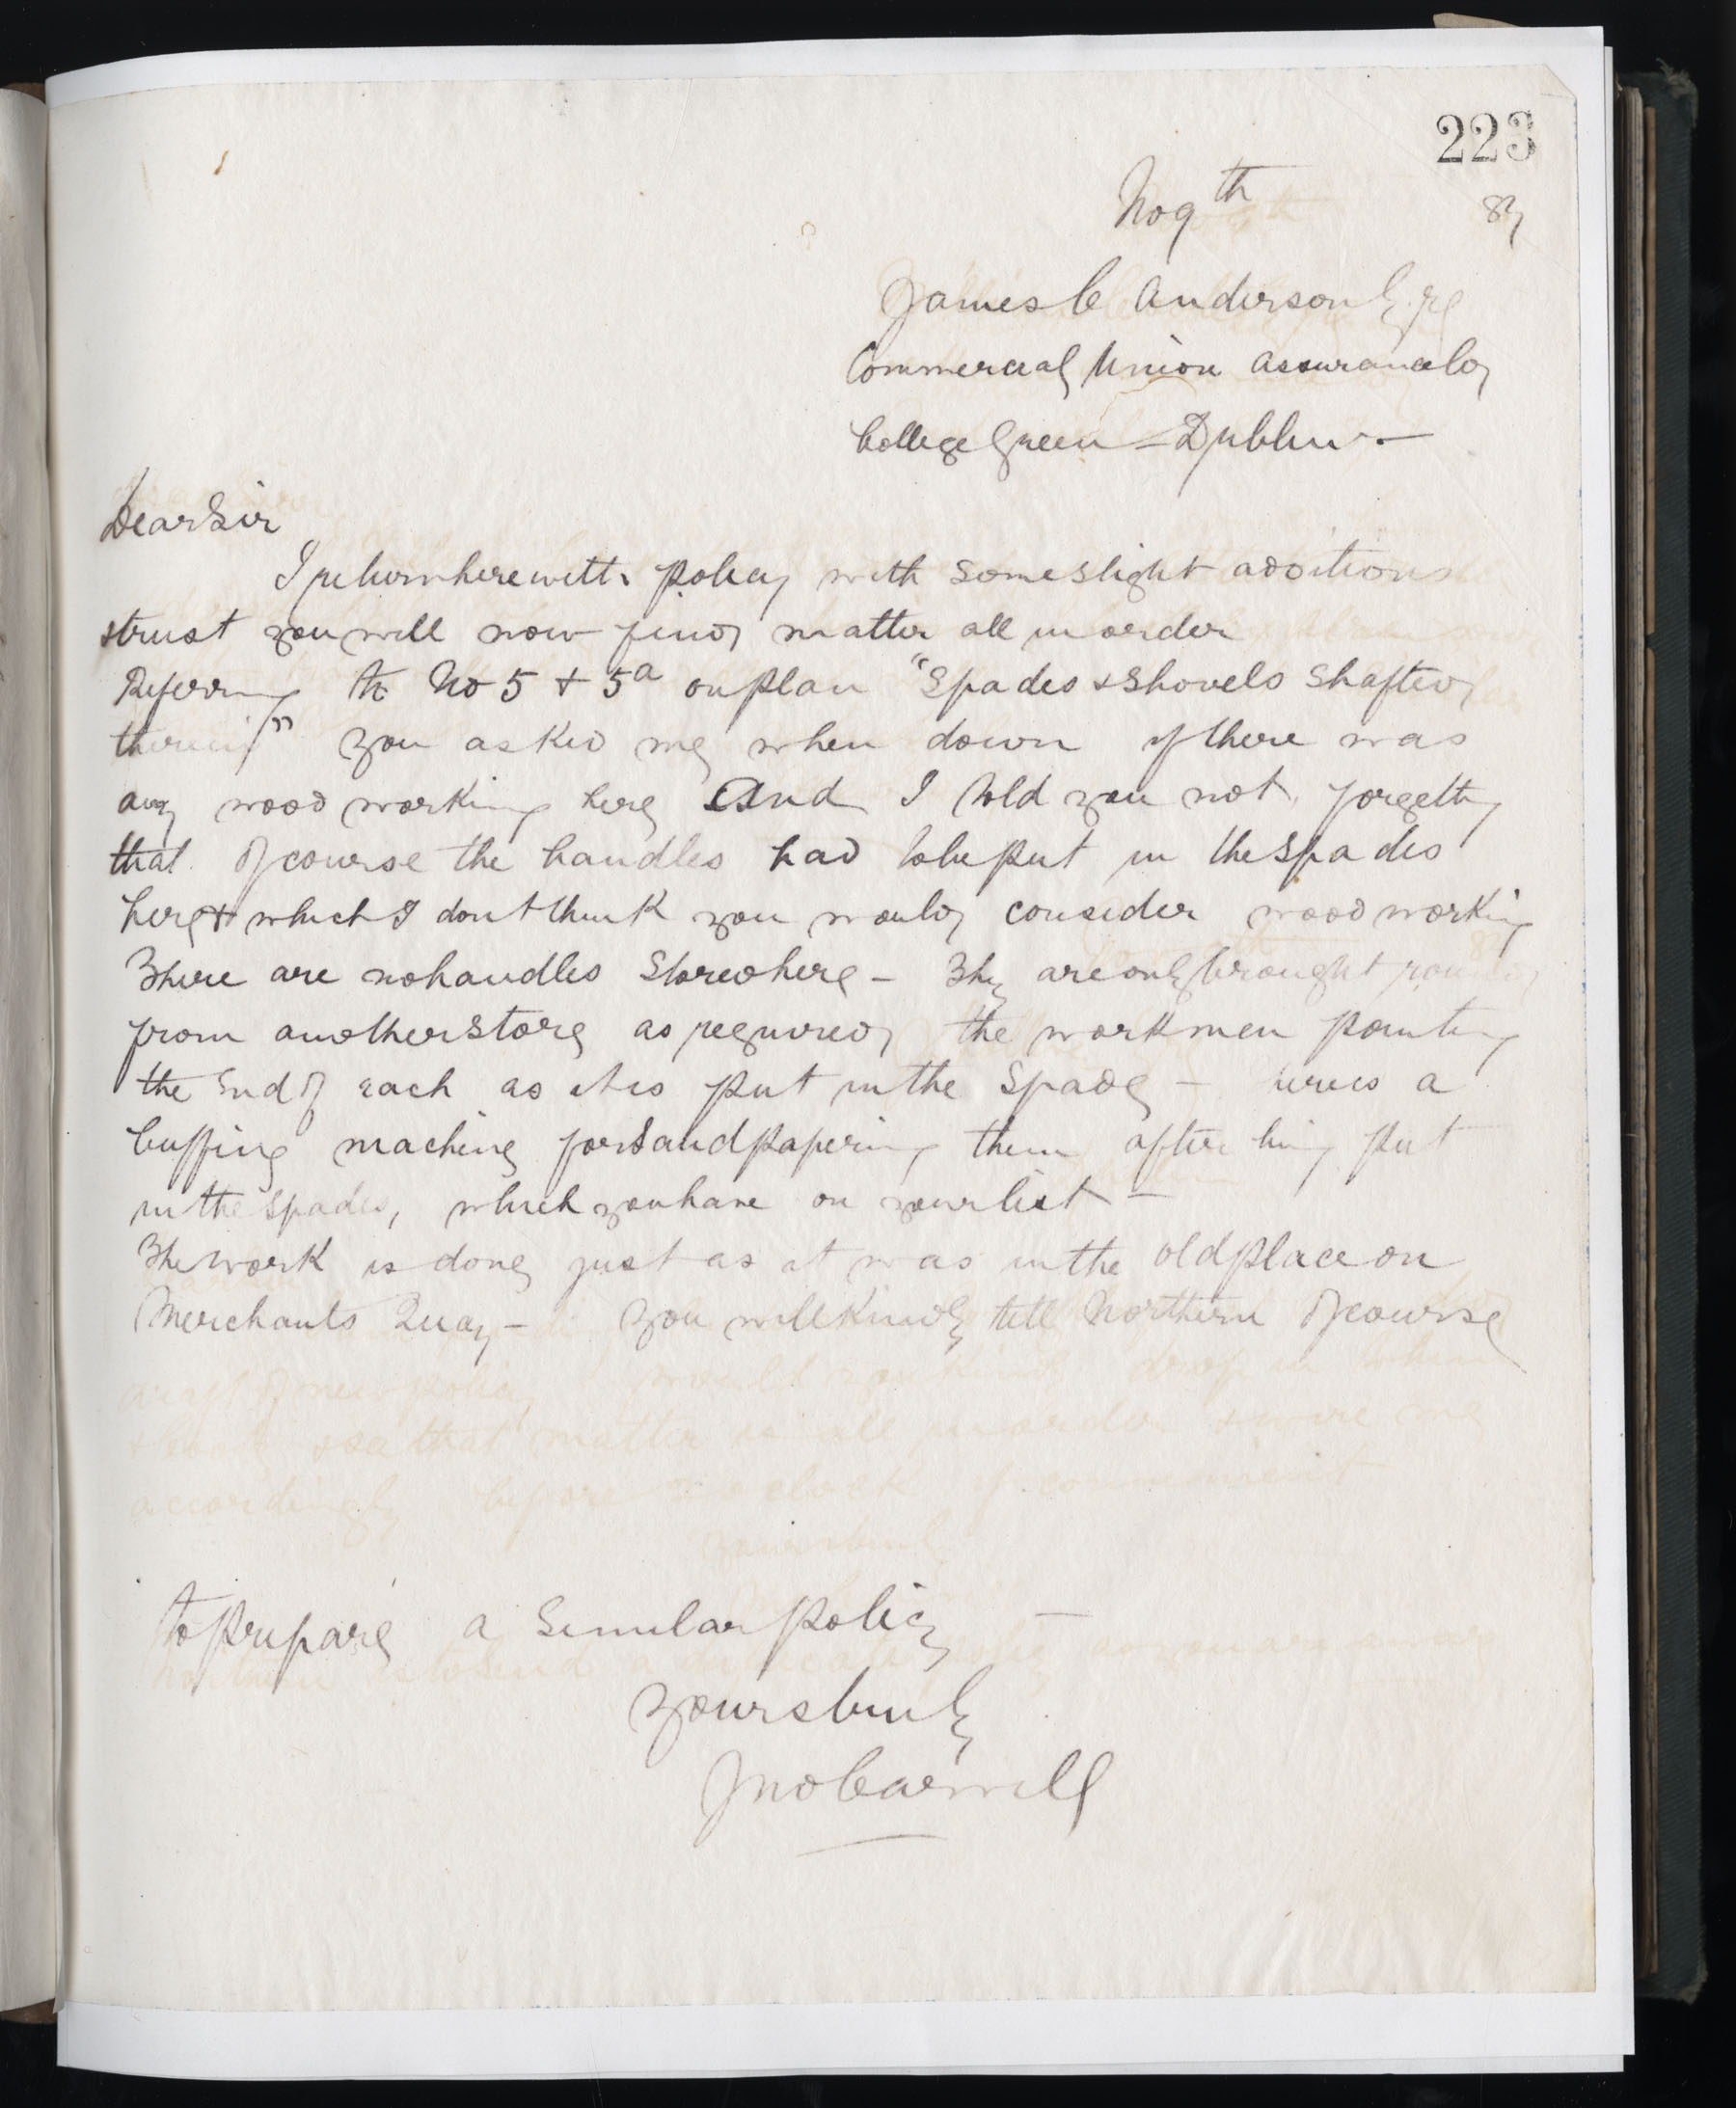 223
Nov 9th 89
James C Anderson Esqre
Commercial Union Assurance Co
College Green - Dublin. -
Dear Sir
I return herewith policy with some slight additions
& trust you will now find matter all in order
Referring to No 5 + 5a on plan "Spades & Shovels Shafted
therein" you asked me when down if there was
any wood working here And I told you not, forgetting
that of course the handles had to be put in the Spades
here & which I dont think you would consider wood working
There are no handles Stored here - They are only brought round
from another store as required, the workmen pointing
the End of each as it is put in the Spade - there is a
buffing machine for Sandpapering them after being put
in the Spades, which you have on your list -
The work is done just as it was in the old place on
Merchants Quay - You will kindly tell Northern of course
to prepare a Similar policy -
Yours truly
Jno Carvill